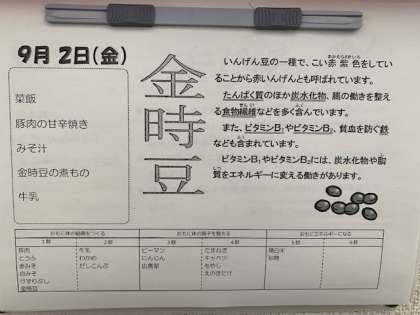 9月2日(金)
菜飯
豚肉の甘辛焼き
みそ汁
金時豆の煮もの
牛乳
金時豆
いんげん豆の一種で、こい赤紫色をしてい
ることから赤いんげんとも呼ばれています。
たんぱく質のほか炭水化物、腸の働きを整え
る食物繊維などを多く含んでいます。
また、ビタミンB₁やビタミンB₂、貧血を防ぐ鉄
なども含まれています。
ビタミンB₁やビタミンB₂には、炭水化物や脂
質をエネルギーに変える働きがあります。
おもに体の組織をつくる おもに体の調子を整える おもにエネルギーになる
1群 2群 3群 4群 5群 6群
豚肉 牛乳 ピーマン たまねぎ 精白米
とうふ わかめ にんじん キャベツ 砂糖
赤みそ だしこんぶ 広島菜 もやし
白みそ えのきたけ
けずりぶし
金時豆